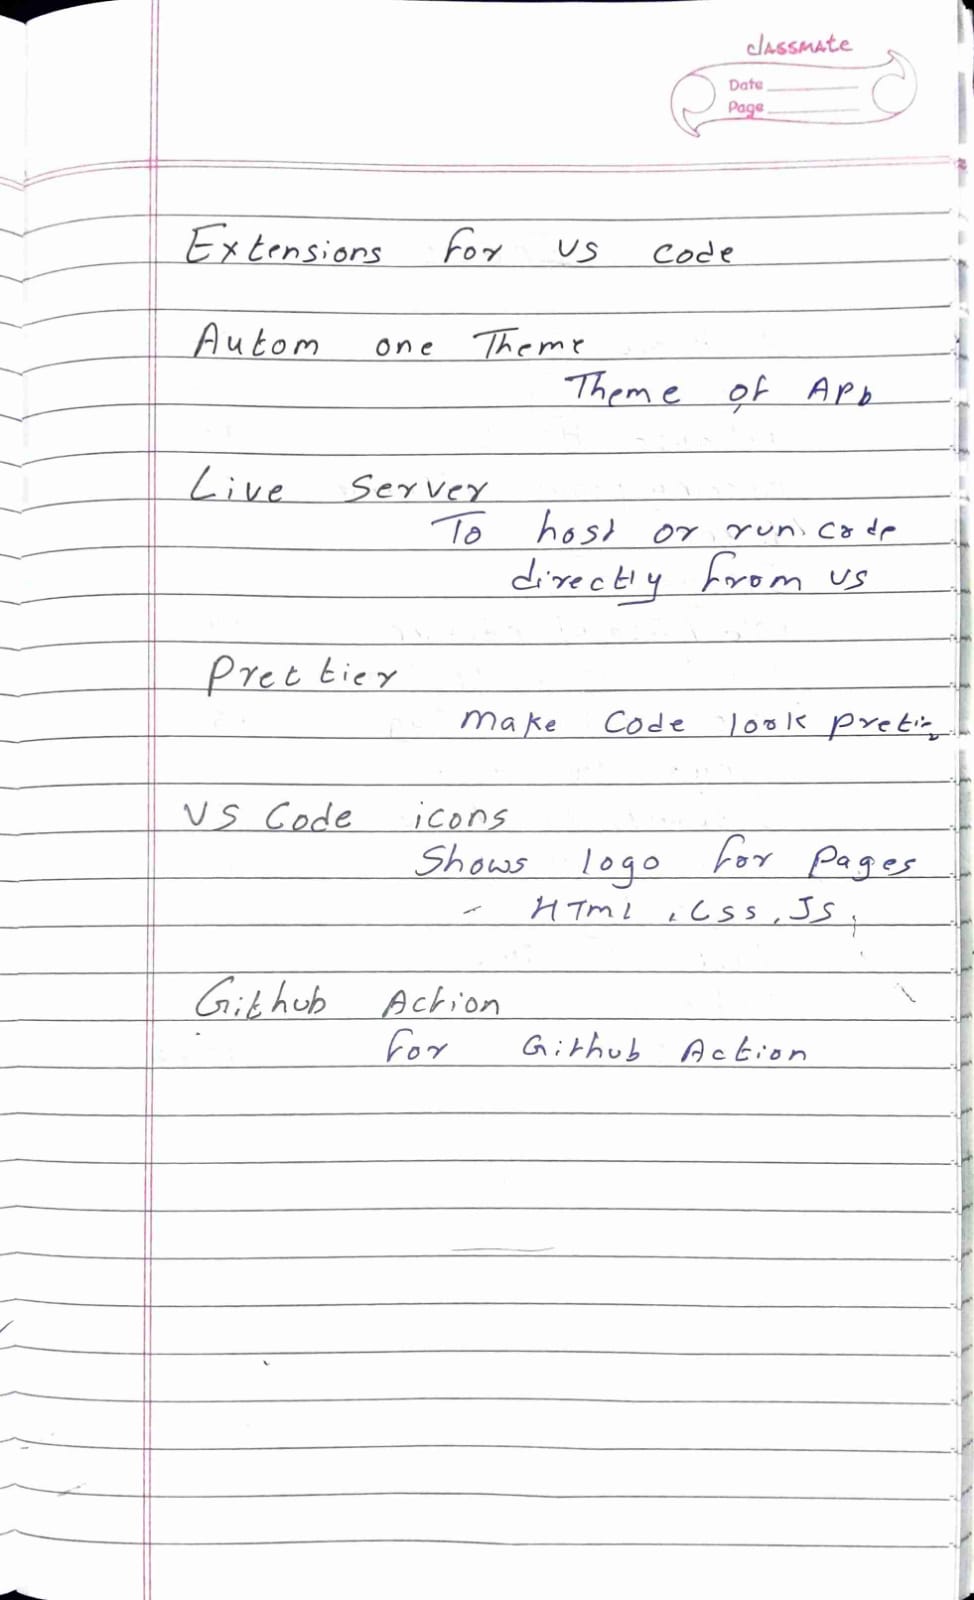 classmate
Date
Page
Extensions for VS code
Autom one Theme
Theme of App
Live Server
To host or run code
directly from VS
Prettier
Make Code look
VS Code icons
Shows logo for Pages
- HTML, CSS, JS,
Github Action
for Github Action